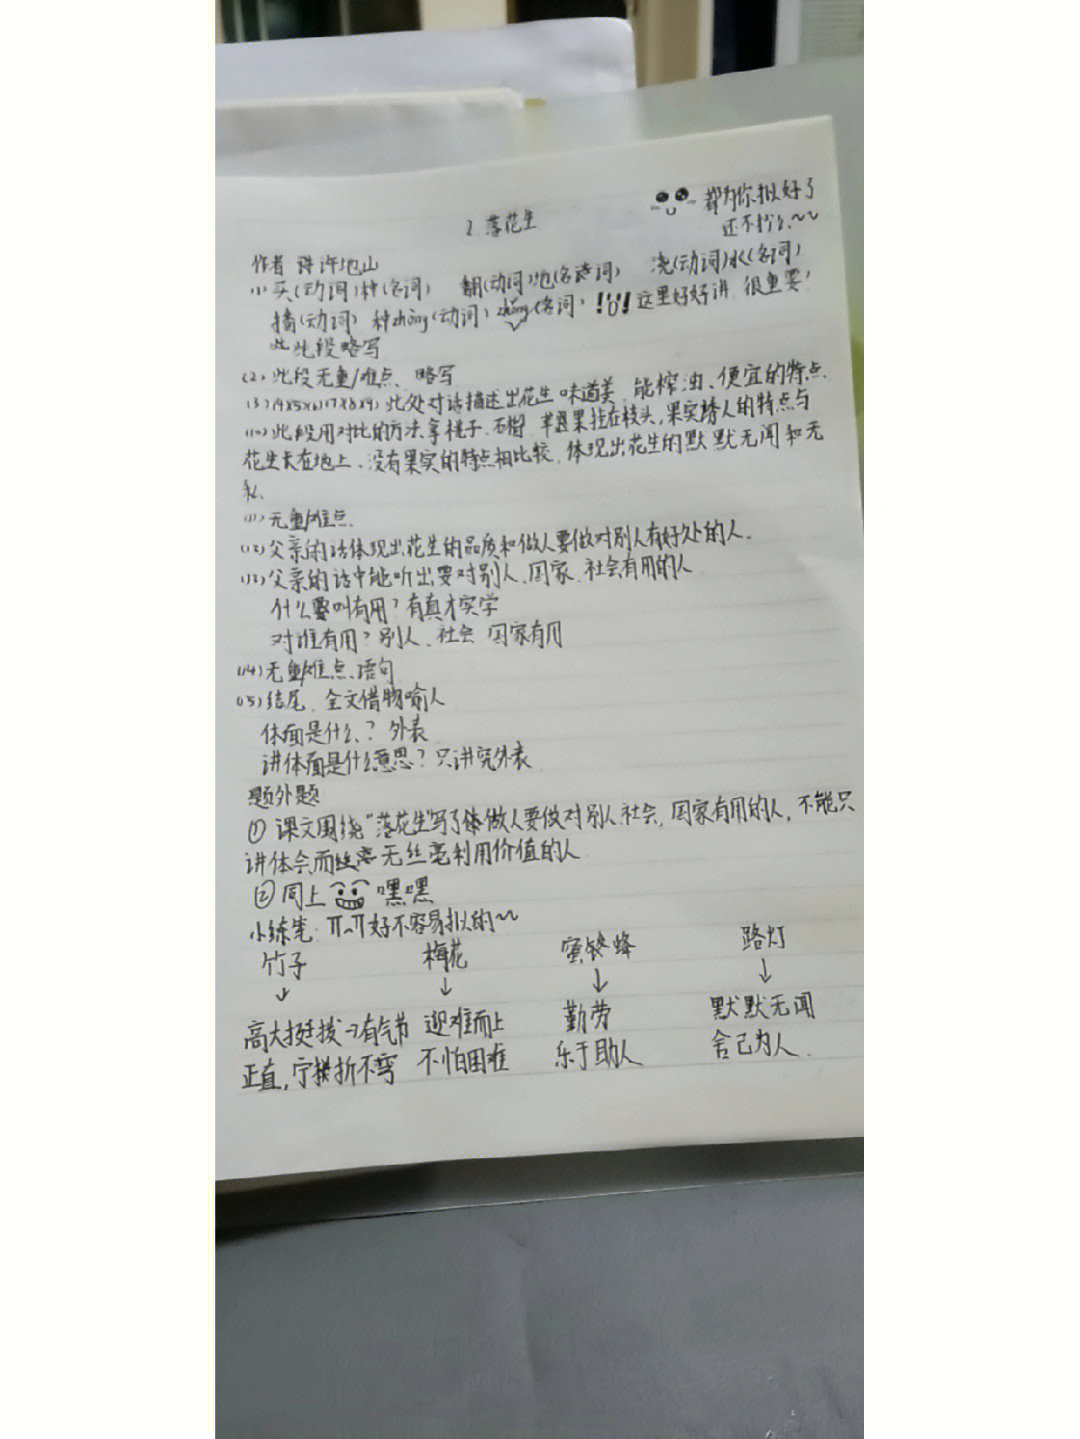 都为你拟好了
还不抄么~~
2.落花生
作者 许地山
(1)买(动词)种(名词) 翻(动词)地(名诗词) 浇(动词)水(名词)
播(动词) 种zhòng(动词) zhǒng(名词) !!! 这里好好讲.很重要!
此段略写
(2)此段无重/难点、略写
(3)(4)(5)(6)(7)(8)(9)此处对话描述出花生 味道美、能榨油、便宜的特点.
(10)此段用对比的方法拿桃子、石榴、苹果挂在枝头,果实诱人的特点与
花生长在地上、没有果实的特点相比较,体现出花生的默默无闻和无
私.
(11)无重/难点.
(12)父亲的话体现出花生的品质和做人要做对别人有好处的人.
(13)父亲的话中能听出要对别人、国家、社会有用的人
什么要叫有用?有真才实学
对谁有用?别人、社会 国家有用
(14)无重/难点、语句
(15)结尾、全文借物喻人
体面是什么?外表
讲体面是什么意思?只讲究外表
题外题
① 课文围绕"落花生"写了做人要做对别人社会,国家有用的人,不能只
讲体会而无丝毫利用价值的人
②同上 嘿嘿
小练笔: 好不容易拟的~~
竹子 梅花 蜜蜂 路灯
↓ ↓ ↓ ↓
高大挺拔→有气节 迎难而上 勤劳 默默无闻
正直,宁折不弯 不怕困难 乐于助人 舍己为人.